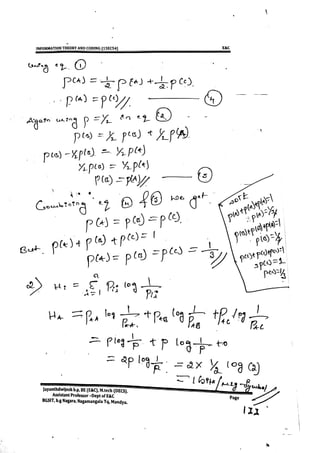 INFORMATION THEORY AND CODING (15EC54) E&C
Using eq ①
p(A) = 1/2 p(A) + 1/2 p(C).
∴ p(A) = p(C)// — ④
Again using p = 1/2 in eq ②
p(B) = 1/2 p(B) + 1/2 p(A)
p(B) - 1/2 p(B) = 1/2 p(A)
1/2 p(B) = 1/2 p(A)
p(B) = p(A)// — ⑤
Combining eq ④ & ⑤ we get
p(A) = p(B) = p(C).
But p(A) + p(B) + p(C) = 1
p(A) = p(B) = p(C) = 1/3 //
p(A)+p(A)+p(A)=1
∴ p(A)=1/3
p(B)+p(B)+p(B)=1
p(B)=1/3
p(C)+p(C)+p(C)=1
3p(C)=1
p(C)=1/3
2) Hi = Σ i=1 Pij log 1/Pij
HA = PAA log 1/PAA + PAB log 1/PAB + PAC log 1/PAC
= p log 1/p + p log 1/p + 0
= 2p log 1/p = 2 × 1/2 log (2)
= 1 bits/msg-symbol //
Jayanthdwijesh h.p. BE (E&C), M.tech (DECS).
Assistant Professor -Dept of E&C
BGSIT, b.g Nagara, Nagamangala Tq, Mandya.
Page
122